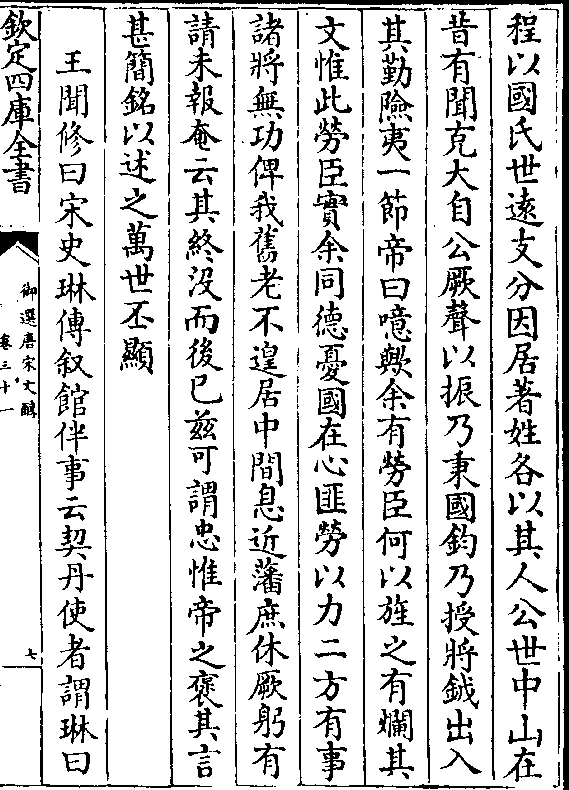 程以國氏世逺支分因居著姓各以其人公世中山在
昔有聞克大自公厥聲以振乃秉國鈞乃授將鉞出入
其勤險夷一節帝曰噫歟余有勞臣何以旌之有爛其
文惟此勞臣實余同德憂國在心匪勞以力二方有事
諸將無功俾我舊老不遑居中間息近藩庶休厥躬有
請未報奄云其終沒而後已兹可謂忠惟帝之褒其言
甚簡銘以述之萬世丕顯
王聞修曰宋史琳傳叙館伴事云契丹使者謂琳曰
欽定四庫全書
御選唐宋文醇
卷三十一
七